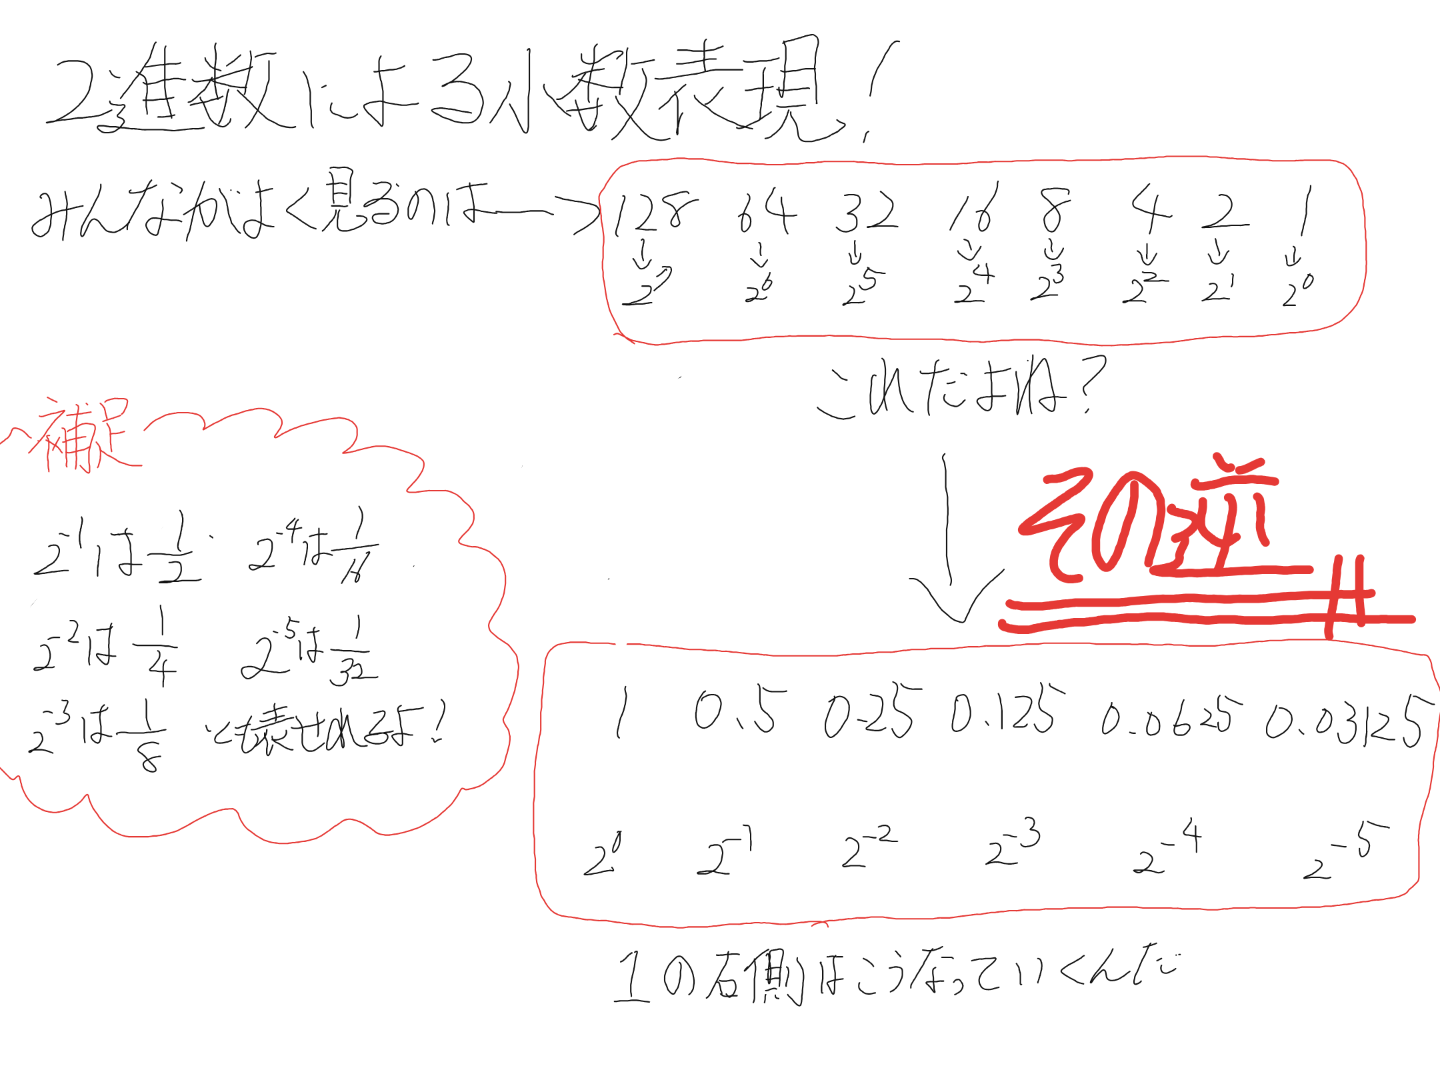 2進数による小数表現!
みんながよく見るのは→
128 64 32 16 8 4 2 1
↓ ↓ ↓ ↓ ↓ ↓ ↓ ↓
2⁷ 2⁶ 2⁵ 2⁴ 2³ 2² 2¹ 2⁰
これだよね?
その逆
補足
2⁻¹は1/2. 2⁻⁴は1/16
2⁻²は1/4 2⁻⁵は1/32
2⁻³は1/8 とも表せれるよ!
1 0.5 0.25 0.125 0.0625 0.03125
2⁰ 2⁻¹ 2⁻² 2⁻³ 2⁻⁴ 2⁻⁵
1の右側はこうなっていくんだ